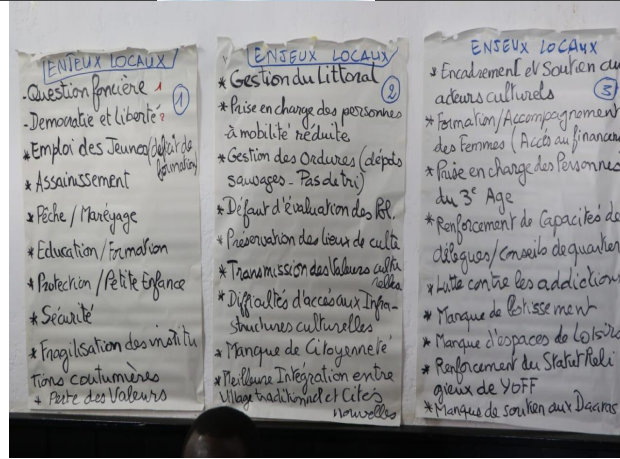 ENJEUX LOCAUX
1
- Question foncière 1
- Democratie et liberté 2
* Emploi des Jeunes (Défaut de formation)
* Assainissement
* Pêche / Maréyage
* Education / Formation
* Protection / Petite Enfance
* Sécurité
* Fragilisation des institu
tions coutumières
+ Perte des Valeurs
ENJEUX LOCAUX
2
* Gestion du Littoral
* Prise en charge des personnes
à mobilité réduite
* Gestion des Ordures (dépôts
sauvages - Pas de tri)
* Défaut d'évaluation des Pol.
* Préservation des lieux de culte
* Transmission des Valeurs cultu
relles
* Difficultés d'accès aux Infra-
structures culturelles
* Manque de Citoyenneté
* Meilleure Intégration entre
Village traditionnel et Cités
nouvelles
ENSEUX LOCAUX
3
* Encadrement et Soutien au
acteurs culturels
* Formation/Accompagnement
des Femmes (Accès au financem
* Prise en charge des Personnes
du 3e Age
* Renforcement de Capacités de
délégues/conseils de quartier
* Lutte contre les addiction
* Manque de lotissement
* Manque d'espaces de Loisirs
* Renforcement du Statut Reli
gieux de YOFF
* Manque de soutien aux Daaras